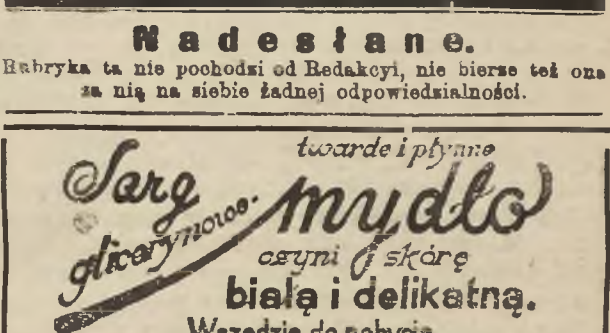 Nadesłane.
Rubryka ta nie pochodzi od Redakcyi, nie bierze też ona
za nią na siebie żadnej odpowiedzialności.
twarde i płynne
Sarg
glicerynowe. mydło
czyni skórę
białą i delikatną.
Wszędzie do nabycia